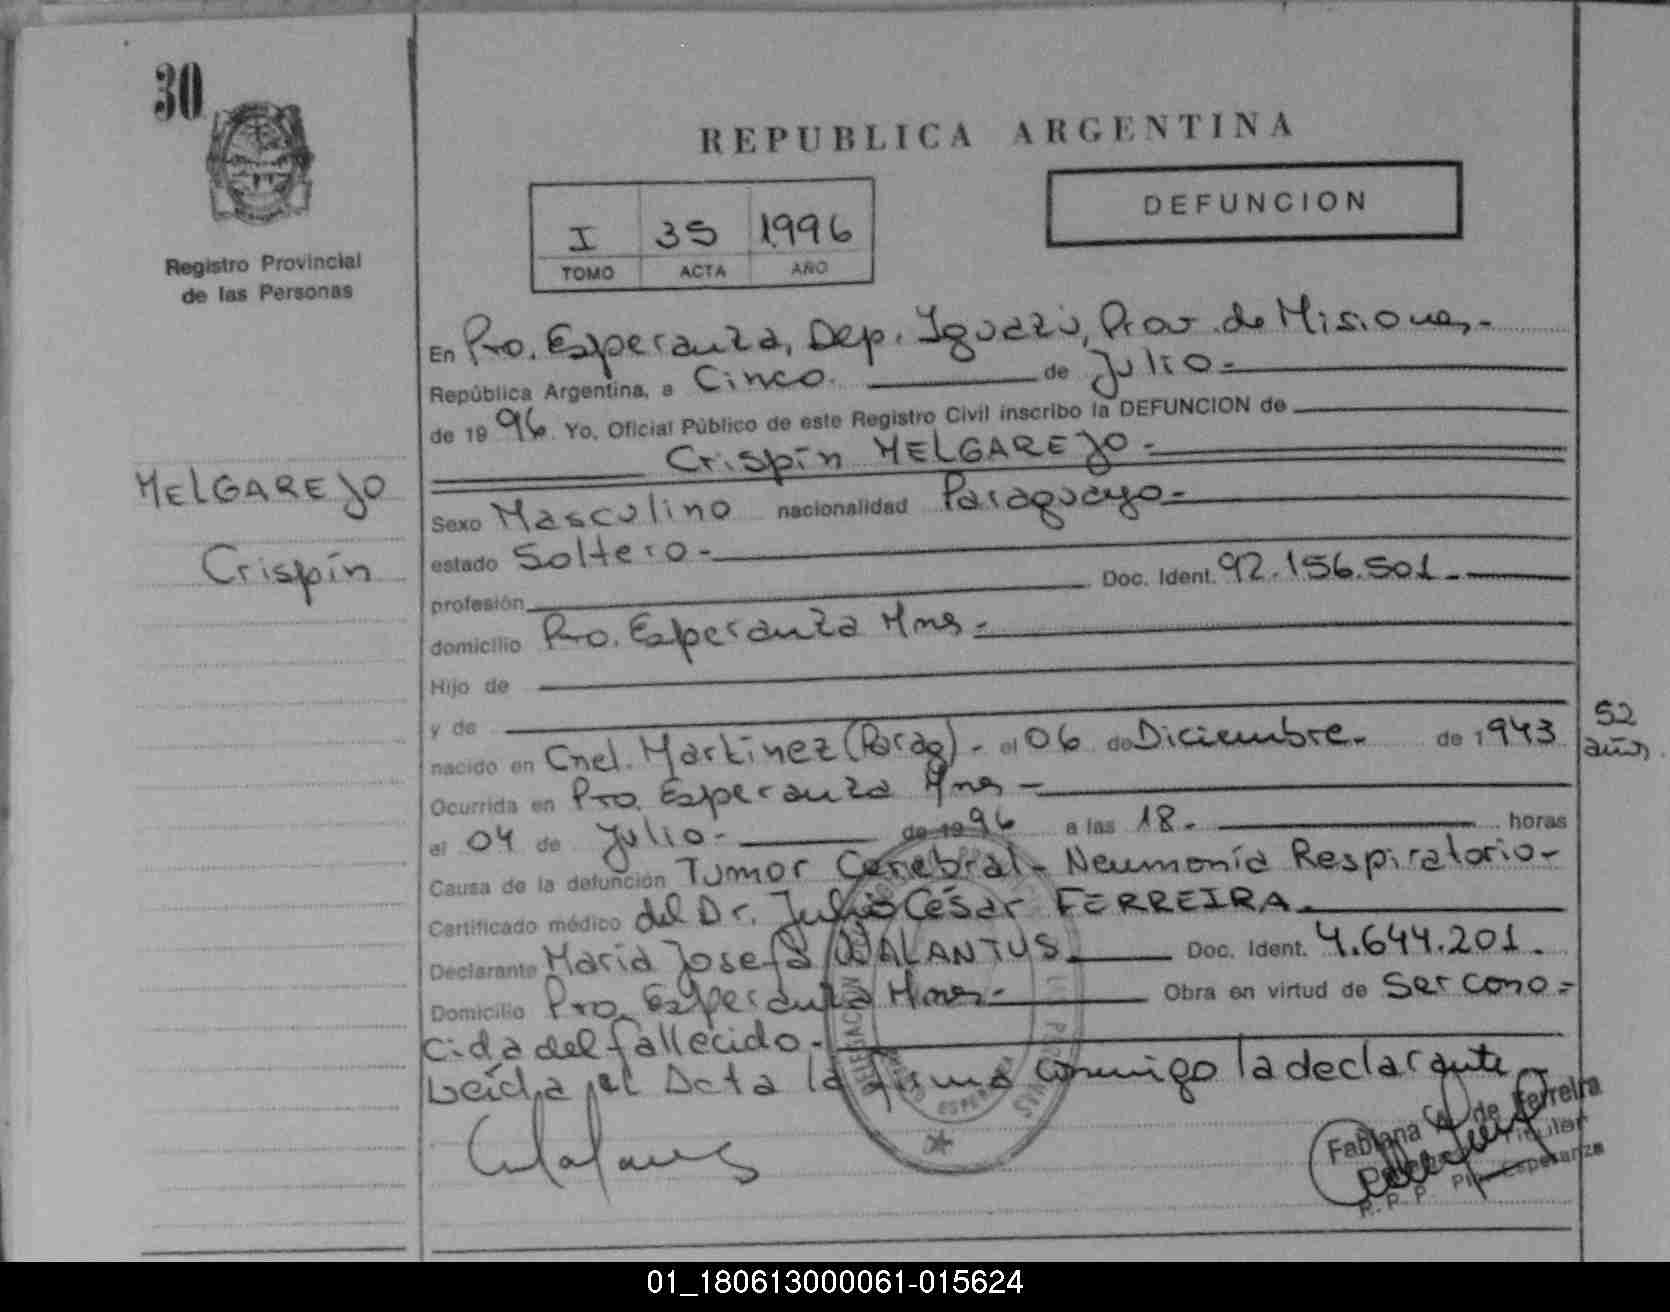 30
REPUBLICA ARGENTINA
DEFUNCION
I 35 1996
TOMO ACTA AÑO
Registro Provincial
de las Personas
En Pto. Esperanza, Dep. Iguazú, Prov. de Misiones,-
República Argentina, a Cinco. de Julio.-
de 1996. Yo, Oficial Público de este Registro Civil inscribo la DEFUNCION de
Crispín MELGAREJO.-
MELGAREJO
Crispín
Sexo Masculino nacionalidad Paraguayo.-
estado Soltero.-
profesión Doc. Ident. 92.156.501.-
domicilio Pto. Esperanza Mnes.-
Hijo de
y de
nacido en Cnel. Martínez (Parag).- el 06 de Diciembre.- de 1943
52
años
Ocurrida en Pto. Esperanza Mnes.-
el 04 de Julio.- de 1996 a las 18.- horas
Causa de la defunción Tumor Cerebral - Neumonía Respiratorio-
Certificado médico del Dr. Julio César FERREIRA.
Declarante María Josefa WALANTUS. Doc. Ident. 4.644.201.
Domicilio Pto. Esperanza Mnes.- Obra en virtud de Ser cono=
cida del fallecido.-
Leída el Acta la firma conmigo la declarante
DELEGACION
ESPERANZA
Fabiana A. de Ferreira
Titular
R. P. P. Pto. Esperanza
01_180613000061-015624